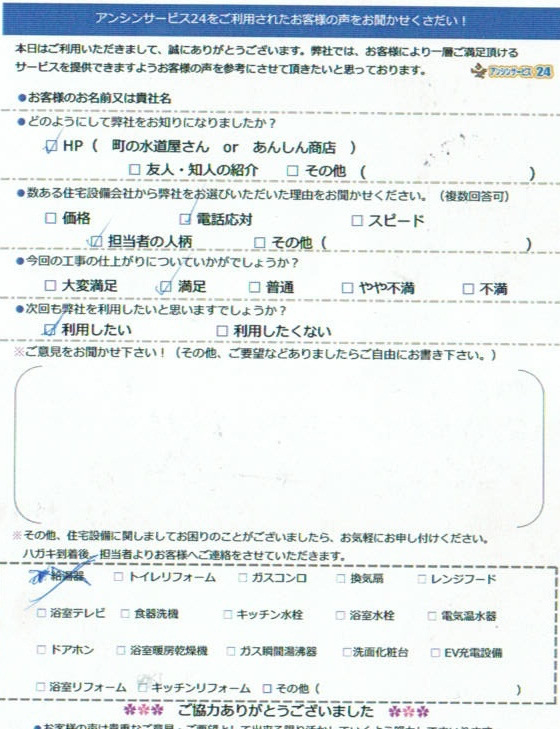 アンシンサービス24をご利用されたお客様の声をお聞かせください！
本日はご利用いただきまして、誠にありがとうございます。弊社では、お客様により一層ご満足頂ける
サービスを提供できますようお客様の声を参考にさせて頂きたいと思っております。
アンシンサービス 24
●お客様のお名前又は貴社名
●どのようにして弊社をお知りになりましたか？
☑ HP（ 町の水道屋さん or あんしん商店 ）
□ 友人・知人の紹介 □ その他 （ ）
●数ある住宅設備会社から弊社をお選びいただいた理由をお聞かせください。（複数回答可）
□ 価格 ☑ 電話応対 □ スピード
☑ 担当者の人柄 □ その他（ ）
●今回の工事の仕上がりについていかがでしょうか？
□ 大変満足 ☑ 満足 □ 普通 □ やや不満 □ 不満
●次回も弊社を利用したいと思いますでしょうか？
☑ 利用したい □ 利用したくない
※ご意見をお聞かせ下さい！（その他、ご要望などありましたらご自由にお書き下さい。）
※その他、住宅設備に関しましてお困りのことがございましたら、お気軽にお申し付けください。
ハガキ到着後、担当者よりお客様へご連絡をさせていただきます。
☑ 給湯器 □ トイレリフォーム □ ガスコンロ □ 換気扇 □ レンジフード
□ 浴室テレビ □ 食器洗機 □ キッチン水栓 □ 浴室水栓 □ 電気温水器
□ ドアホン □ 浴室暖房乾燥機 □ ガス瞬間湯沸器 □ 洗面化粧台 □ EV充電設備
□ 浴室リフォーム □ キッチンリフォーム □ その他（ ）
ご協力ありがとうございました